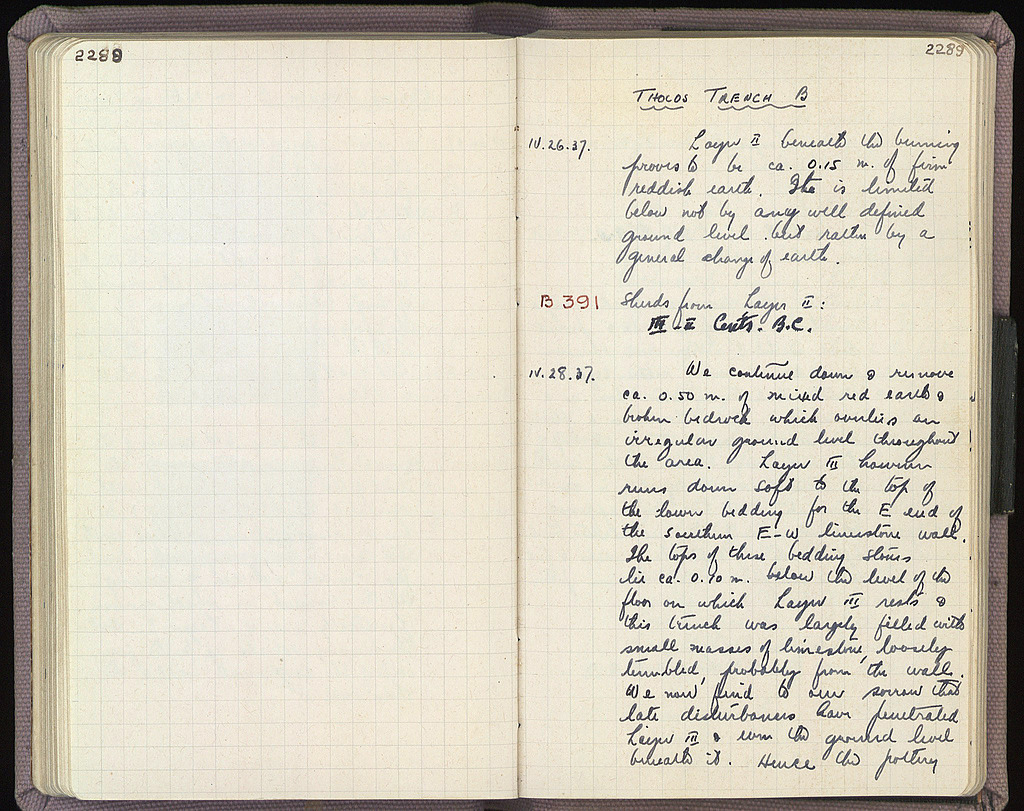 2289
2289
THOLOS TRENCH B
IV.26.37. Layer II beneath the burning
proves to be ca. 0.15 m. of firm
reddish earth. The is limited
below not by any well defined
ground level but rather by a
general change of earth.
B 391 Sherds from Layer II:
III-II Cents. B.C.
IV.28.37. We continue down & remove
ca. 0.50 m. of mixed red earth &
broken bedrock which overlies an
irregular ground level throughout
the area. Layer III however
runs down soft to the top of
the lower bedding for the E end of
the southern E-W limestone wall.
The tops of these bedding stones
lie ca. 0.10 m. below the level of the
floor on which Layer III rests &
this trench was largely filled with
small masses of limestone, loosely
tumbled, probably from the wall.
We now find to our sorrow that
late disturbances have penetrated
Layer III & even the ground level
beneath it. Hence the pottery